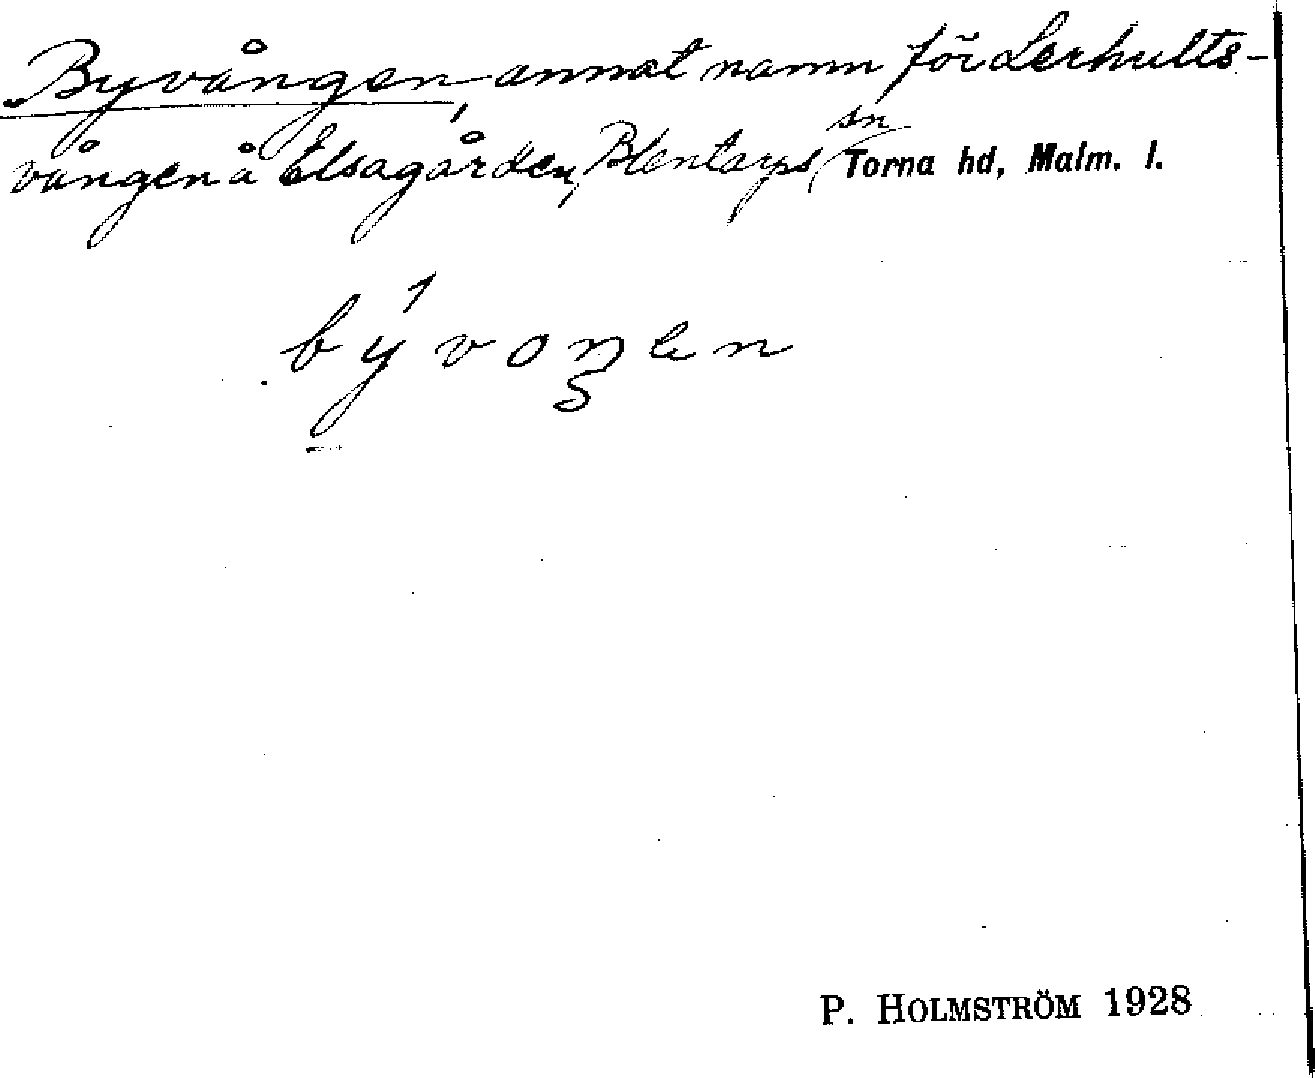 Byvången, annat namn för Lerhults-
vången å Elsagården, Blentarps sn Torna hd, Malm. l.
bývoŋen
P. HOLMSTRÖM 1928